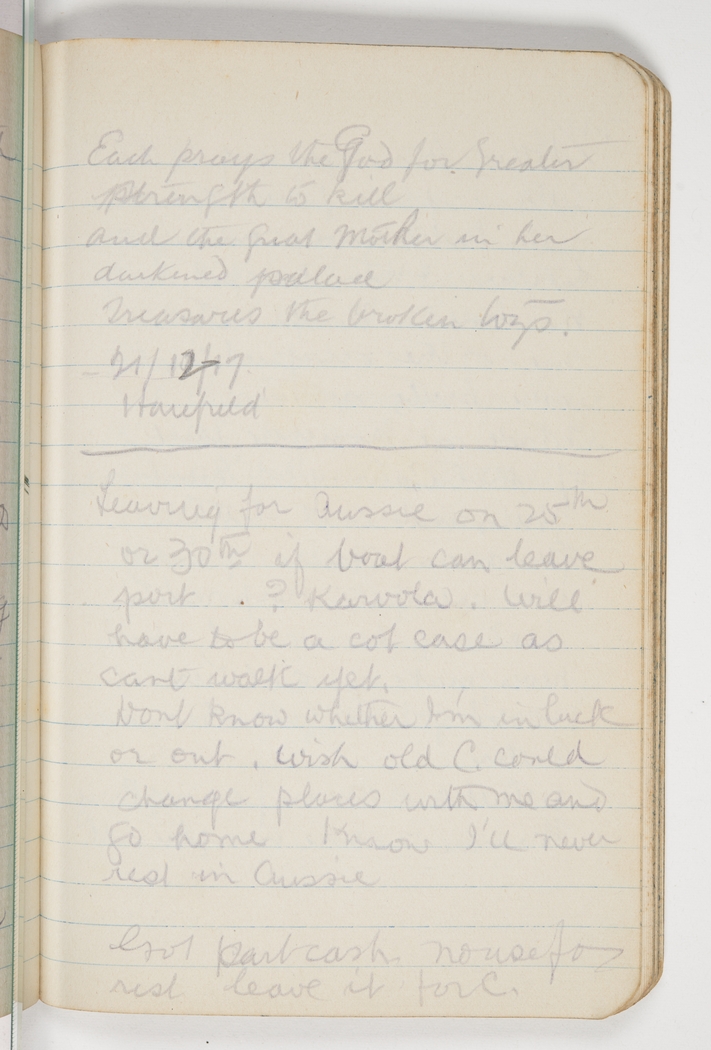 Each prays the God for greater
strength to kill
and the great Mother in her
darkened palace
Treasures the broken toys.
- 21/12/17
Harefield
Leaving for Aussie on 25th
or 30th if boat can leave
port . ? Karoola. Will
have to be a cot case as
cant walk yet.
Dont know whether I'm in luck
or out. Wish old C. could
change places with me and
go home Know I'll never
rest in Aussie
Got part cash no use for
rest leave it for C.